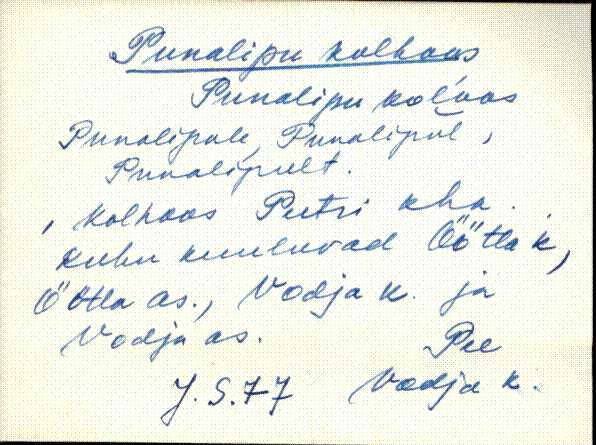 Punalipu kolhoos
Punalipu kol'oos
Punalipule, Punalipul,
Punalipult.
, kolhoos Peetri kha.
kuhu kuuluvad Öötla k,
Öötla as., Vodja k. ja
Vodja as.
Pee
J. S. 77 Vodja k.